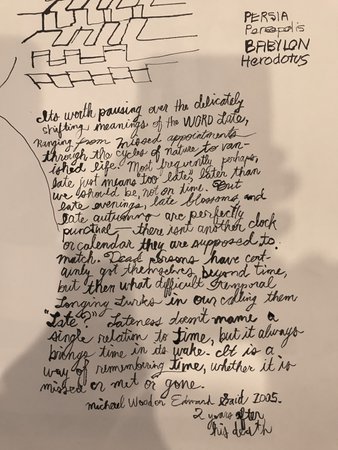 PERSIA
Persepolis
BABYLON
Herodotus
Its worth pausing over the delicately
shifting meanings of the WORD late,
ranging from missed appointments
through the cycles of nature to van-
ished life. Most frequently perhaps,
late just means too late," later than
we should be, not on time. But
late evenings, late blossoms and
late autumns are perfectly
punctual— there isnt another clock
or calendar they are supposed to
match. Dead persons have cert-
ainly got themselves, beyond time,
but then what difficult temporal
Longing Lurks in our calling them
"late"? Lateness doesn't name a
single relation to time, but it always
brings time in its wake. It is a
way of remembering time, whether it is
missed or met or gone.
michael Wood on Edward Said 2005.
2 years after
his death